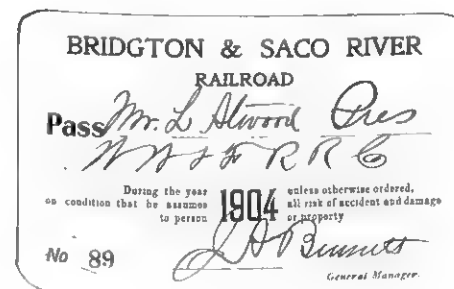 BRIDGTON & SACO RIVER
RAILROAD
Pass Mr. L Atwood Pres
W W & F R R Co
During the year 1904 unless otherwise ordered,
on condition that he assumes all risk of accident and damage
to person or property
No 89 J A Bennett
General Manager.